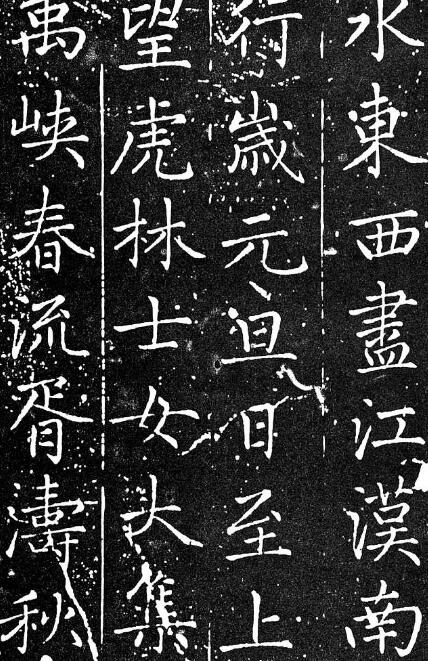 水東西盡江漢南
行歲元亘日至上
望虎林士女大集
萬峡春流胥濤秋